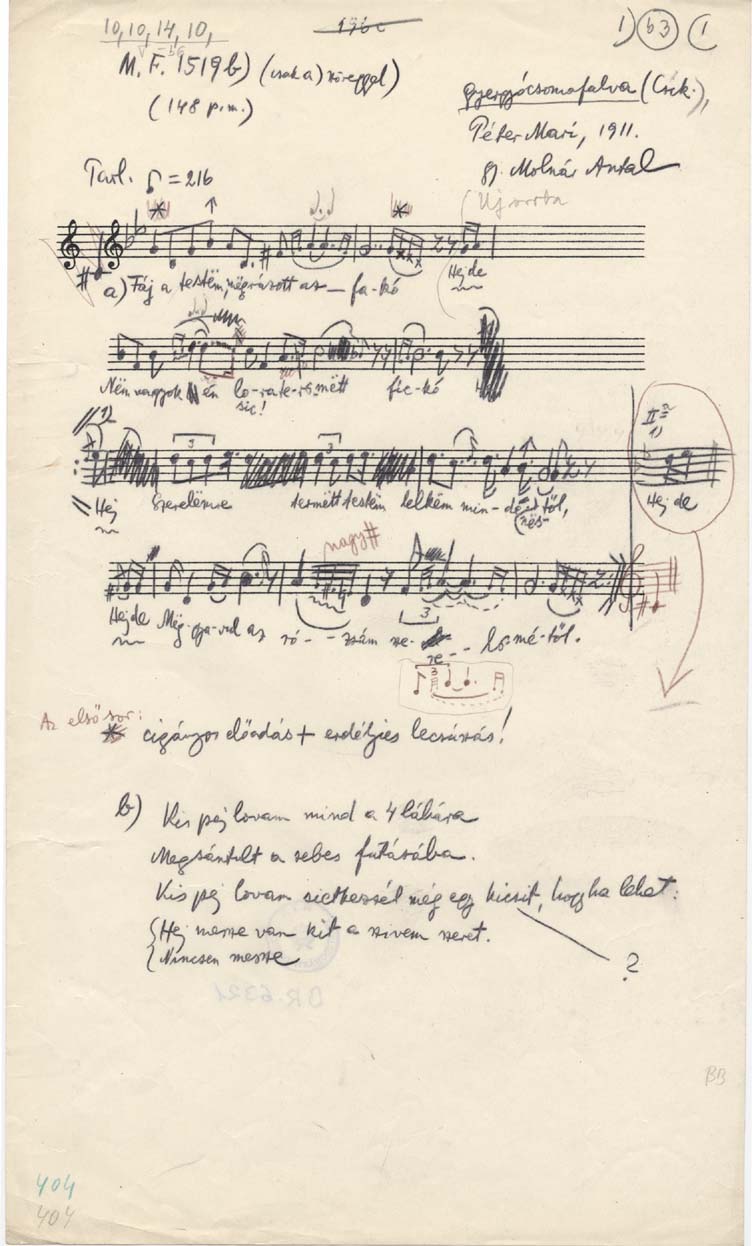 10, 10, 14, 10,
1) 63 (1
M. F. 1519 b) (csak a) szöveggel)
(148 p.m.)
Gyergyócsomafalva (Csík.),
Péter Mari, 1911.
gy. Molnár Antal
Parl. ♪ = 216
Új sorba
a) Fáj a testëm, mëgrázott az _ fa-kó
Hejde
Nëm vagyok én lo-rak-
fic-kó
sic!
II
1)
Hej Szerelëmre termëtt testëm lelkëm min-
től,
Hej de
nagy #
Hejde Mëg- az ró- - -zsám sze- re- - - lme-től.
3
Az első sor:
* cigányos előadás + erdélyies lecsúszás!
b) Kis pej lovam mind a 4 lábára
Megsántult a sebes futásába.
Kis pej lovam siess még egy kicsit, hogyha lehet:
Hej messze van kit a szivem szeret.
Nincsen messze
?
BR 6321
BB
404
404